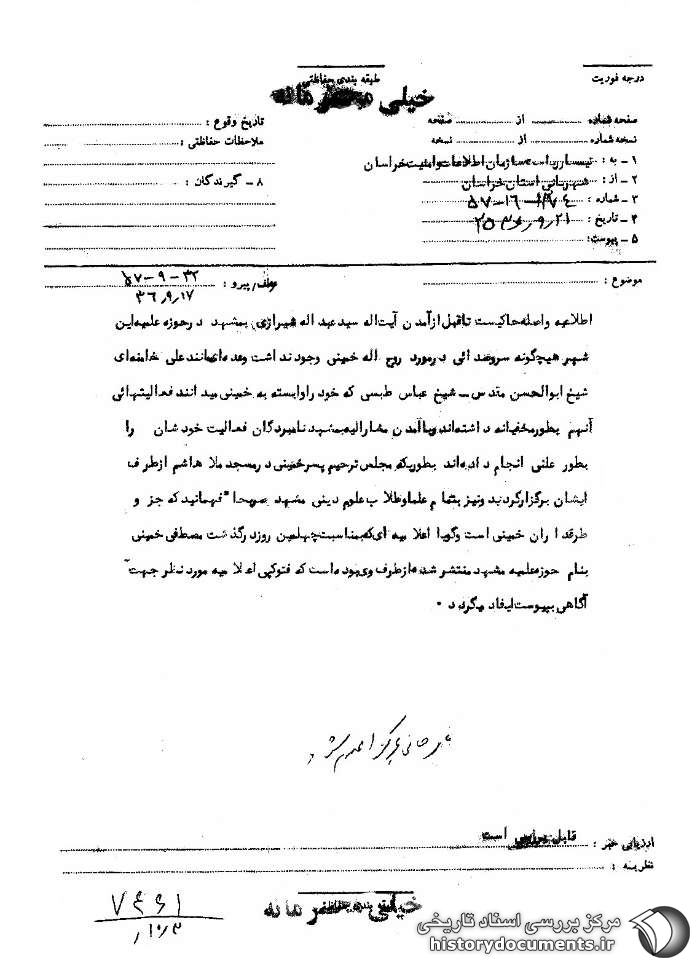 درجه فوریت
طبقه بندی حفاظتی
خیلی محرمانه
صفحه شماره ......... از ......... صفحه
نسخه شماره ......... از ......... نسخه
۱ ـ به : تیمسار ریاست سازمان اطلاعات وامنیت خراسان
۲ ـ از : شهربانی استان خراسان
۳ ـ شماره :
۴ ـ تاریخ :
۵ ـ پیوست:
تاریخ وقوع :
ملاحظات حفاظتی :
۸ ـ گیرندگان :
موضوع :
پیرو : ۳۲-۹-۵۷
۳۶٫۹٫۱۷
اطلاعیه واصله حاکیست تاقبل ازآمدن آیت اله سید عبد اله شیرازی بمشهد در حوزه علمیه این
شهر هیچگونه سروصدائی در مورد روح اله خمینی وجود نداشت وعده ای مانند علی خامنه ای
شیخ ابوالحسن مقدس ـ شیخ عباس طبسی که خود را وابسته به خمینی میدانند فعالیتهائی
آنهم بطور مخفیانه داشته اند وباآمدن مشارالیه بمشهد نامبردگان فعالیت خودشان را
بطور علنی انجام داده اند بطوریکه مجلس ترحیم پسر خمینی در مسجد ملاهاشم ازطرف
ایشان برگزار گردید ونیز بتمام علما وطلاب علوم دینی مشهد صریحا" فهمانید که جز و
طرفداران خمینی است وگویا اعلامیه ای که بمناسبت چهلمین روز درگذشت مصطفی خمینی
بنام حوزه علمیه مشهد منتشر شده از طرف وی بوده است که فتوکپی اعلامیه مورد نظر جهت
آگاهی بپیوست ایفاد میگردد .
ارزیابی خبر : قابل بررسی است
نظریه :
طبقه بندی حفاظتی
خیلی محرمانه
۷۴۶۱
۱۰٫۳
مرکز بررسی اسناد تاریخی
historydocuments.ir